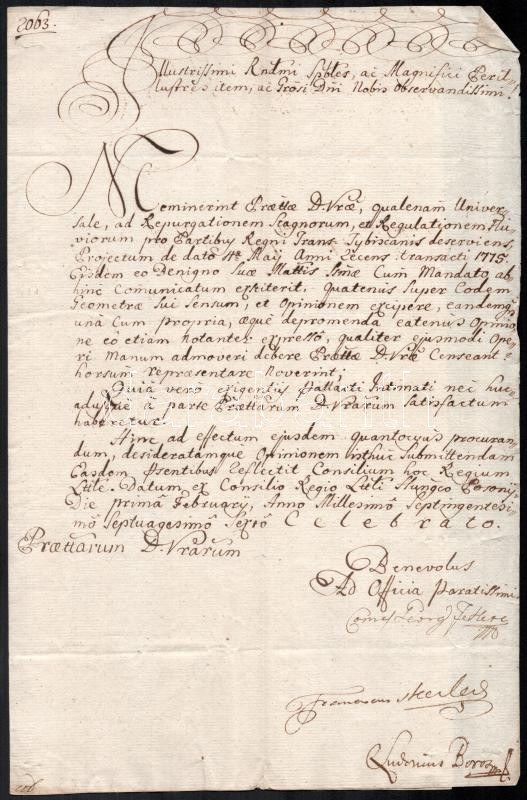 2063.
Illustrissimi Rndmi Spbles, ac Magnifici Peril-
lustres item, ac Grosi Dni Nobis Observandissimi!
Meminerint Prættæ D. Vræ, qualenam Univer-
sale, ad Repurgationem Stagnorum, et Regulationem Flu-
viorum pro Partibus Regni Trans-Tybiscanis deserviens,
Projectum de dato May Anni recens transacti 1775.
Eisdem eo Benigno Suæ Mattis Ssmæ Cum Mandato ab
hinc Comunicatum extiterit, quatenus Super Eodem
Geometræ Sui Sensum, et Opinionem excipere, eandemq
unà Cum propria, æque depromenda eatenus Opinio-
ne eò etiam notanter expresso, qualiter ejusmodi Ope-
ri Manum admoveri debere Prættæ D. Vræ Censeant
horsum repræsentare Noverint;
Quia verò exigentiis Intimati nec huc-
adusque à parte Prættarum D. Vrarum Satisfactum
haberetur:
Hinc ad effectum ejusdem quantocyus procuran-
dum, desideratamque Opinionem isthuc Submittendam
Easdem Psentibus reflectit Consilium hoc Regium
Lttle. Datum ex Consilio Regio Lttli Hungco Posony
Die prima February, Anno Millesimo Septingentesi-
mô Septuagesimô Sextô Celebrato.
Prættarum D. Vrarum
Benevolus
Ad Officia Paratissimi
Comes Georg
Franciscus
Ludovicus Boros